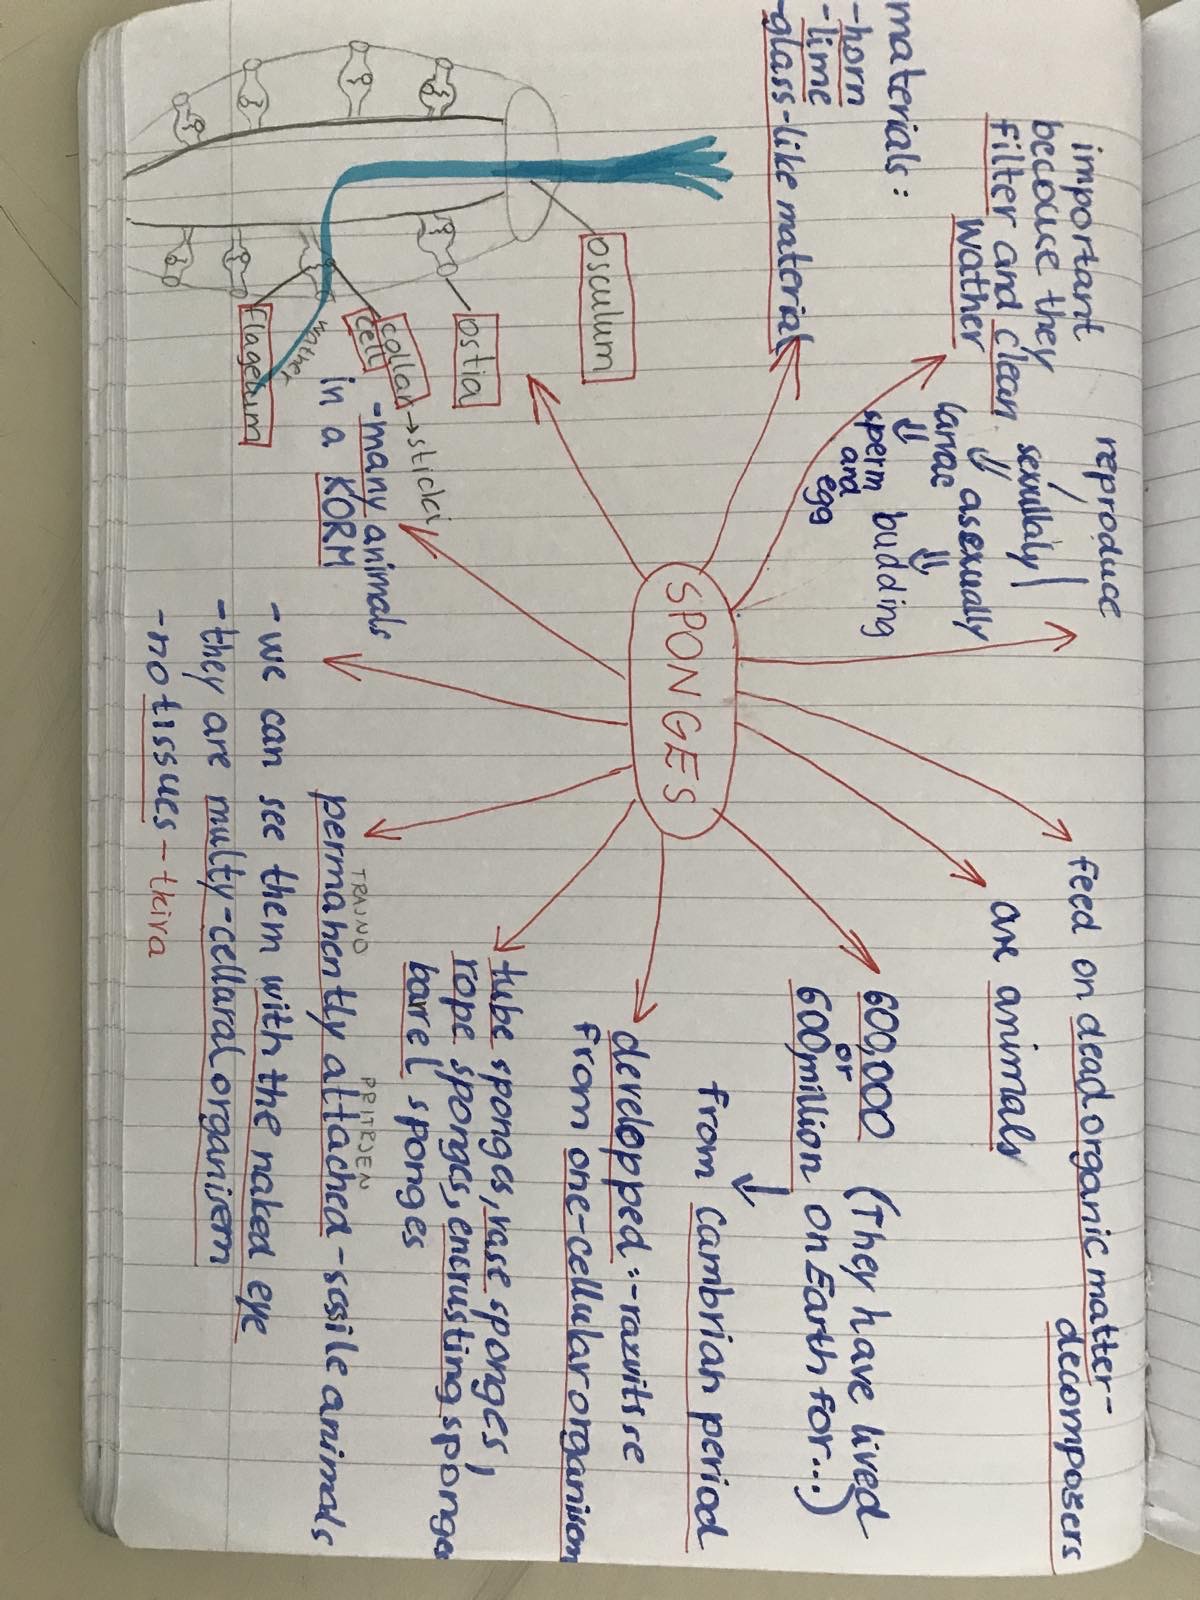 important
becouse they
filter and clean
wather
materials:
-horn
-lime
-glass-like material
reproduce
sexullaly
asexually
larvae
budding
sperm
and
egg
osculum
ostia
collar → sticki
cell
wather
flagelum
-many animals
in a KORM
SPONGES
feed on dead organic matter-
decomposers
are animals
600,000
or
600,million
(They have lived
on Earth for...)
from cambrian period
developed:-razvits se
from one-cellular organisom
tube sponges, vase sponges,
rope sponges, encrusting sponges
barrel sponges
TRAJNO
PRITRJEN
permahently attached-sssile animals
-we can see them with the naked eye
-they are multy-cellaral organisem
-no tissues - tkiva